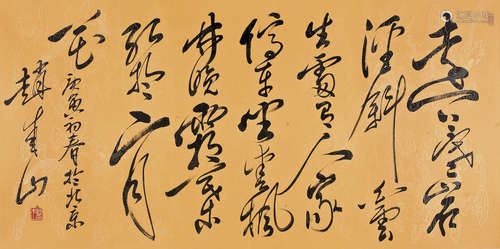 遠上寒山石
徑斜白雲
生處有人家
停車坐愛楓
林晚霜葉
紅於二月
花
庚寅初春於北京
趙
山